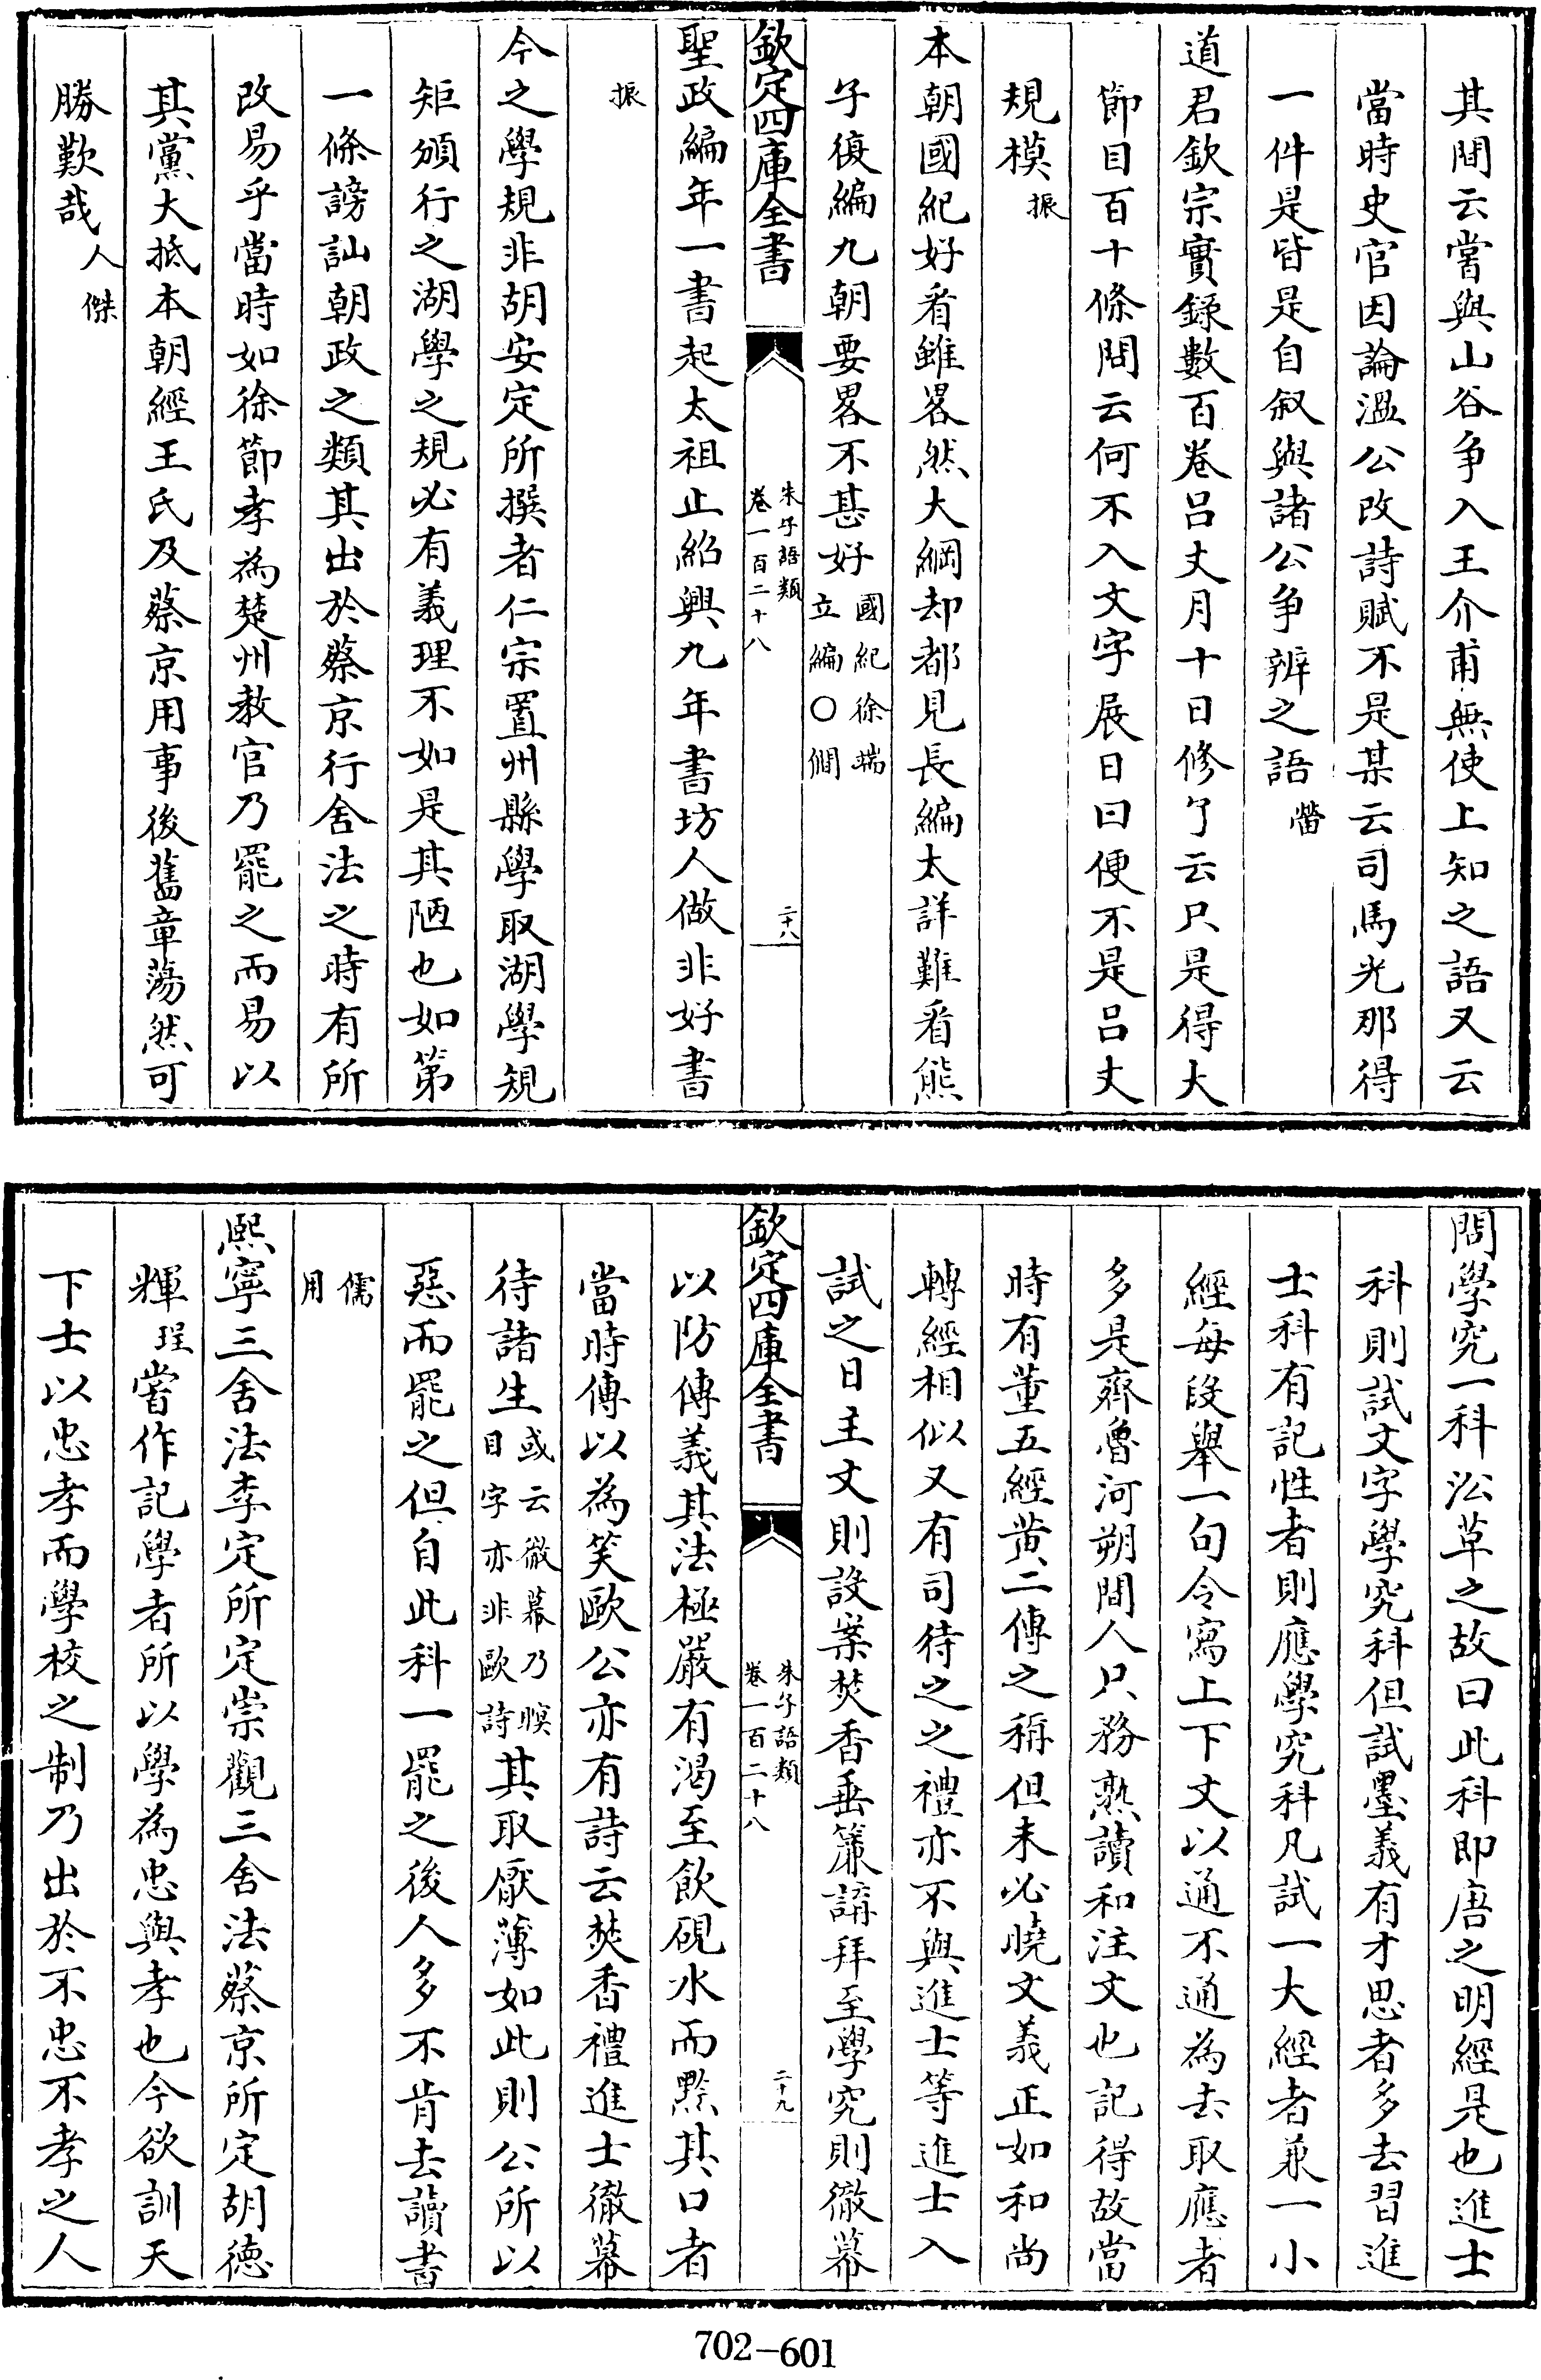 其間云嘗與山谷争入王介甫無使上知之語又云
當時史官因論溫公改詩賦不是某云司馬光那得
一件是皆是自叙與諸公争辨之語㽦
道君欽宗實錄數百卷呂丈月十日修了云只是得大
節目百十條間云何不入文字展日曰便不是呂丈
規模振
本朝國紀好看雖畧然大綱却都見長編太詳難看熊
子復編九朝要畧不甚好國紀徐端立編〇僩
欽定四庫全書
朱子語類
卷一百二十八
二十八
聖政編年一書起太祖止紹興九年書坊人做非好書
振
今之學規非胡安定所撰者仁宗置州縣學取湖學規
矩頒行之湖學之規必有義理不如是其陋也如第
一條謗訕朝政之類其出於蔡京行舍法之時有所
改易乎當時如徐節孝為楚州教官乃罷之而易以
其黨大抵本朝經王氏及蔡京用事後舊章蕩然可
勝歎哉人傑
問學究一科㳂革之故曰此科即唐之明經是也進士
科則試文字學究科但試墨義有才思者多去習進
士科有記性者則應學究科凡試一大經者兼一小
經每段舉一句令寫上下文以通不通為去取應者
多是齊魯河朔間人只務熟讀和注文也記得故當
時有董五經黄二傳之稱但未必曉文義正如和尚
轉經相似又有司待之之禮亦不與進士等進士入
試之日主文則設案焚香垂簾講拜至學究則徹幕
欽定四庫全書
朱子語類
卷一百二十八
二十九
以防傳義其法極嚴有渴至飲硯水而黥其口者
當時傳以為笑歐公亦有詩云焚香禮進士徹幕
待諸生或云徹幕乃瞑目字亦非歐詩其取厭薄如此則公所以
惡而罷之但自此科一罷之後人多不肯去讀書
儒用
熙寧三舍法李定所定崇觀三舍法蔡京所定胡德
輝珵嘗作記學者所以學為忠與孝也今欲訓天
下士以忠孝而學校之制乃出於不忠不孝之人
702-601